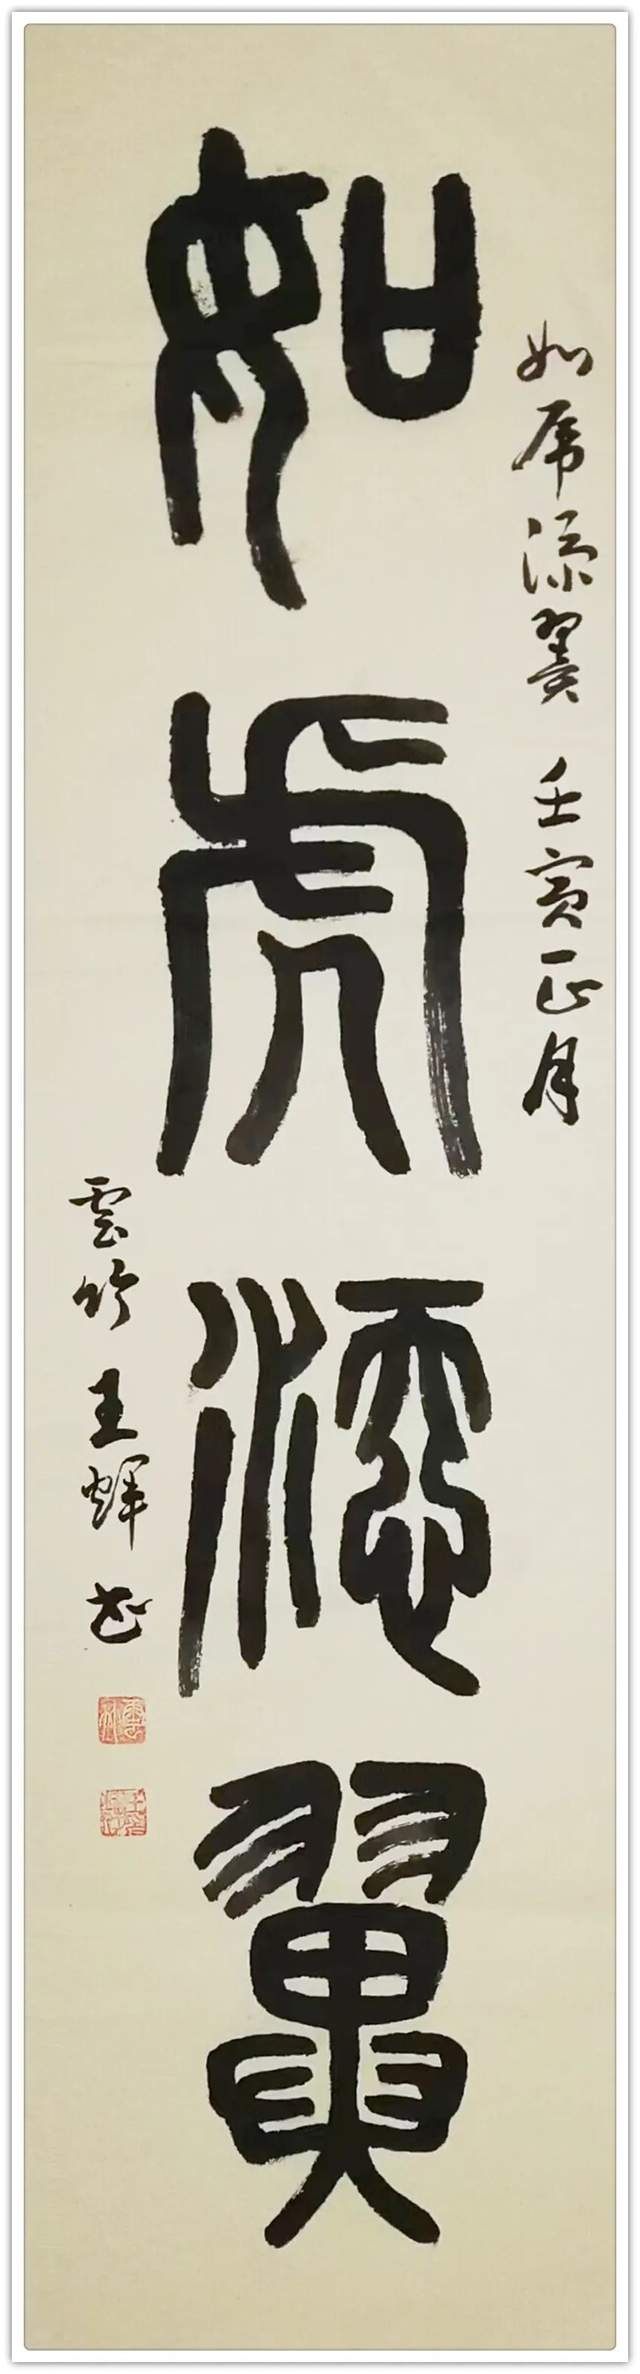 如虎添翼
如虎添翼 壬寅正月
雲竹 王輝书